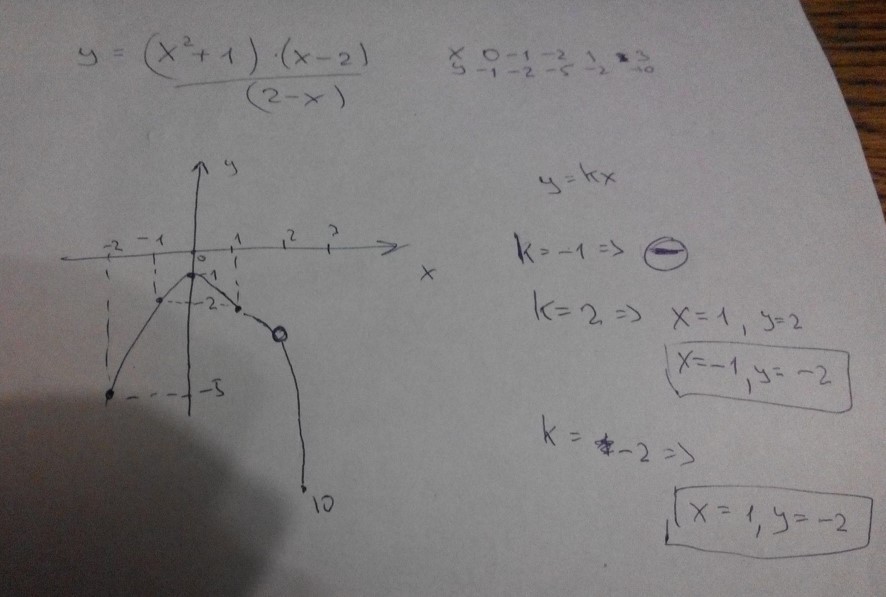 y = (x² + 1) · (x - 2)
(2 - x)
x 0 -1 -2 1 3
y -1 -2 -5 -2 -10
y
-2 -1 1 2 3
0
x
-1
-2
-5
10
y = kx
k = -1 => ⊖
k = 2 => x = 1, y = 2
x = -1, y = -2
k = -2 =>
x = 1, y = -2